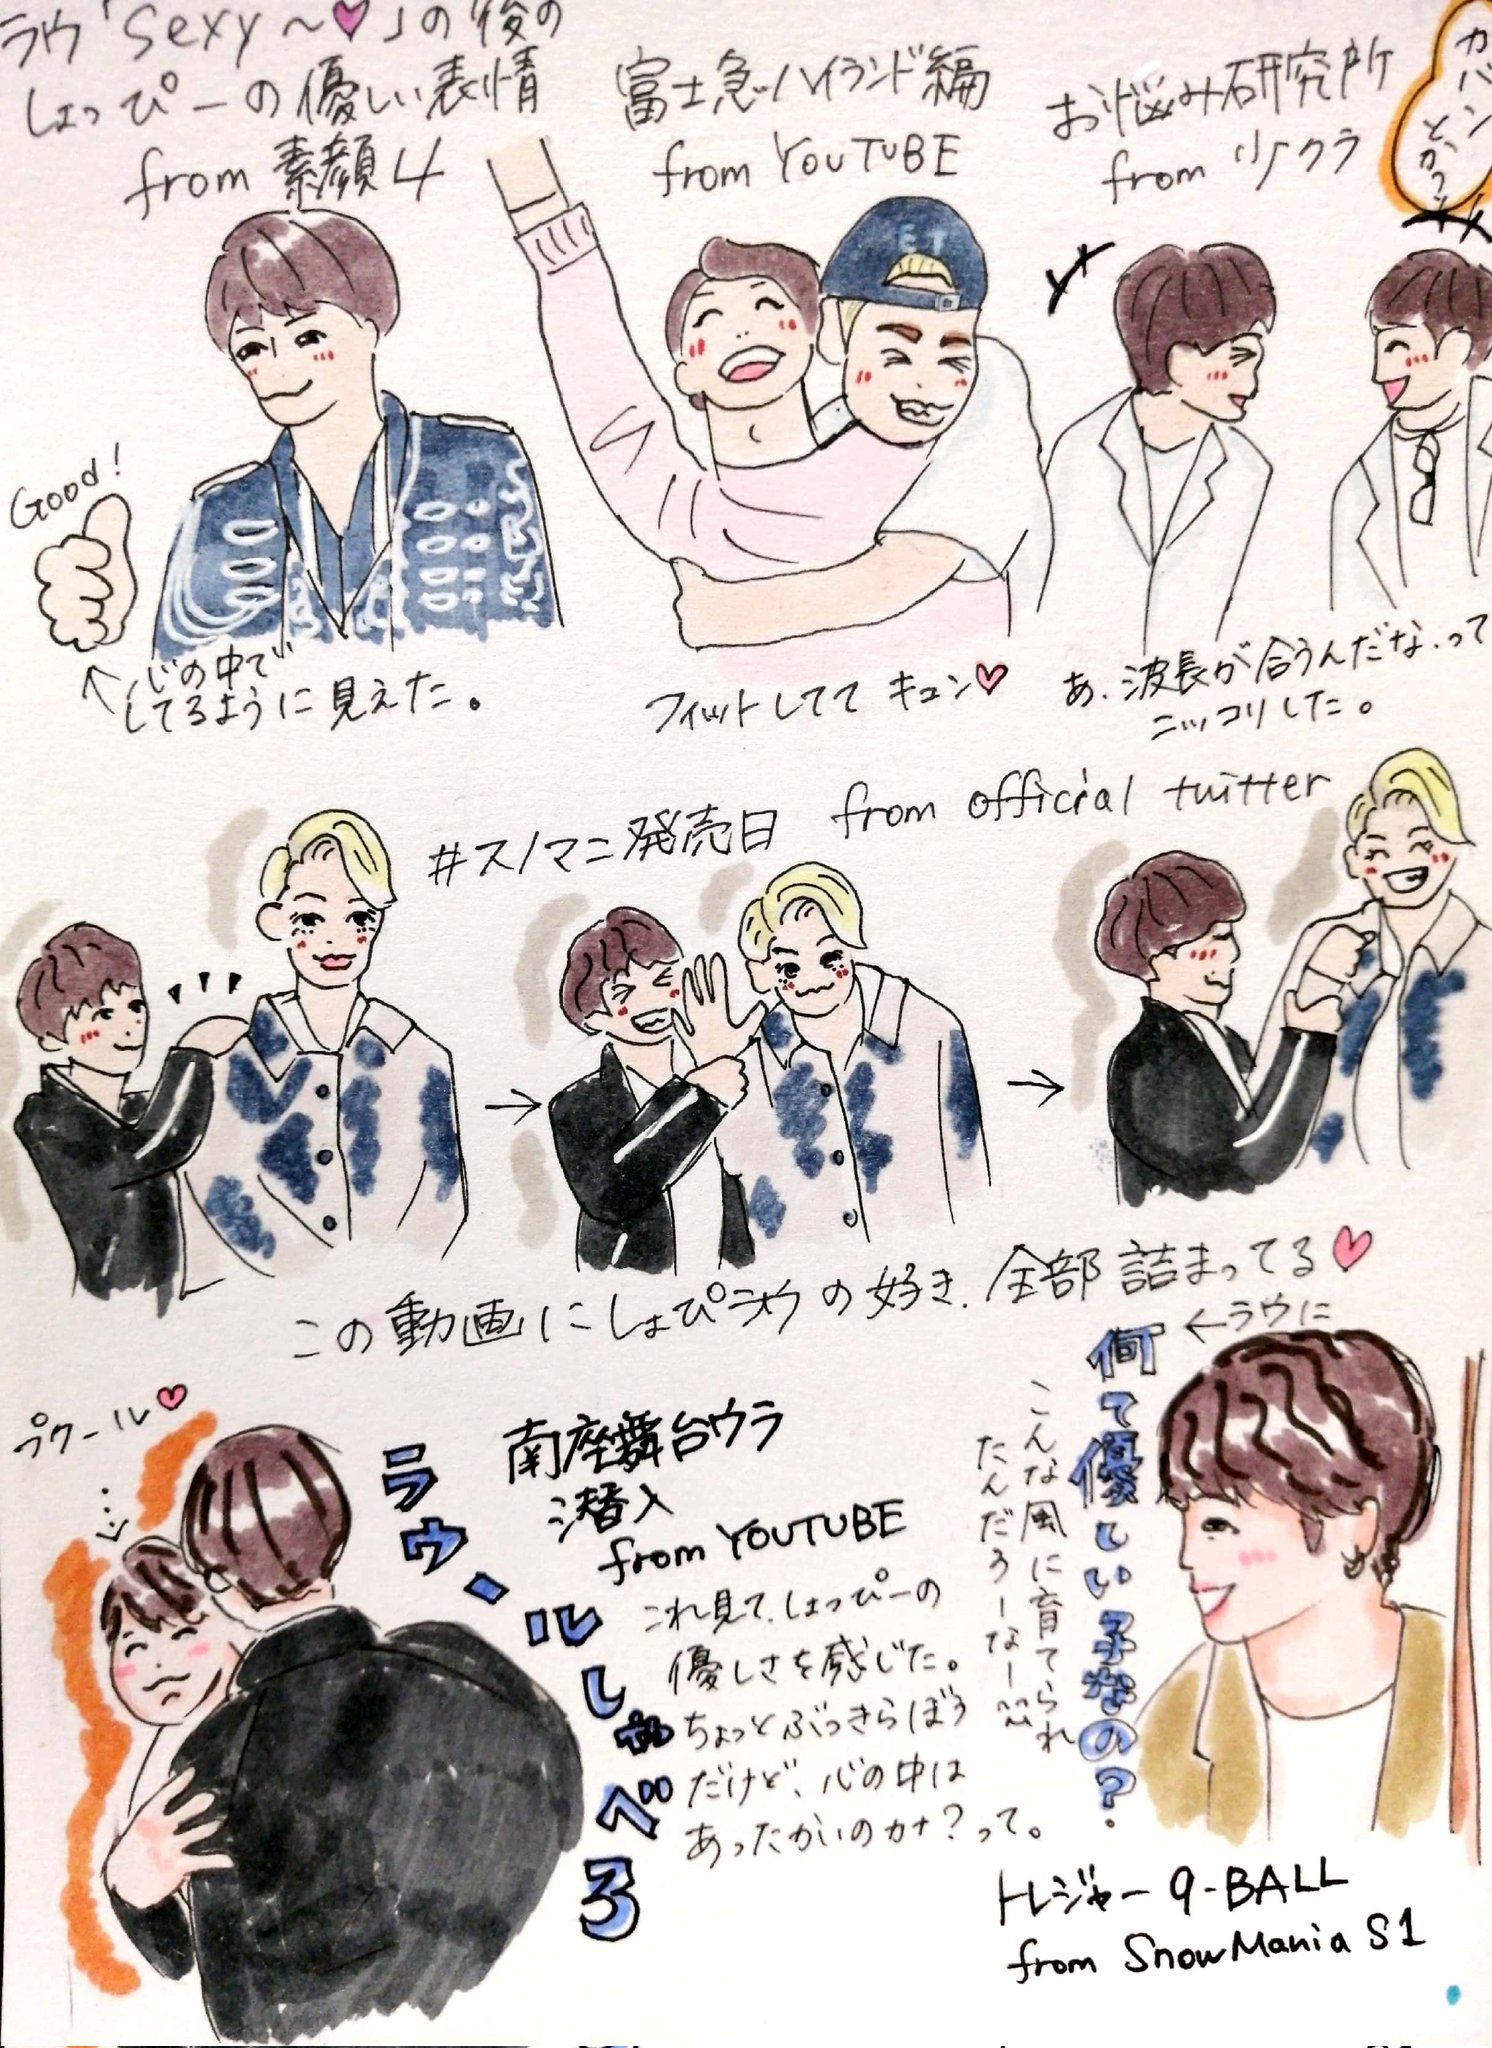 ラウ「Sexy〜♥」の後の
しょっぴーの優しい表情
from 素顔4
Good!
↑心の中で
してるように見えた。
富士急ハイランド編
from YOUTUBE
E T
フィットしてて キュン♥
お悩み研究所
from リクラ
カバン
とかっ
あ、波長が合うんだな、って
ニッコリした。
#スノマニ発売日 from official twitter
→
→
この動画にしょぴラウの好き、全部詰まってる♥
ラウール♥
南座舞台ウラ
潜入
from YOUTUBE
ラウールしゃべろ
これ見て、しょっぴーの
優しさを感じた。
ちょっとぶっきらぼう
だけど、心の中は
あったかいのカナ?って。
←ラウに
何て優しい子なの?
こんな風に育てられ
たんだろーなー
トレジャー 9-BALL
from SnowMania S1